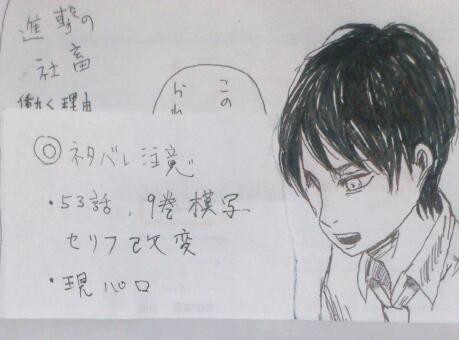 進撃の
社畜
働く理由
この
◎ネタバレ注意
・53話、9巻模写
セリフ改変